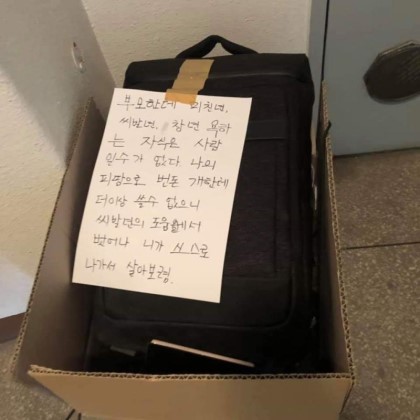 부모한데 미친년,
씨발년, 창년 욕하
는 자식은 사람
일수가 없다. 나의
피땀으로 번돈 개한테
더이상 쓸수 없으니
씨발년의 도움에서
벗어나 니가 스스로
나가서 살아보렴.